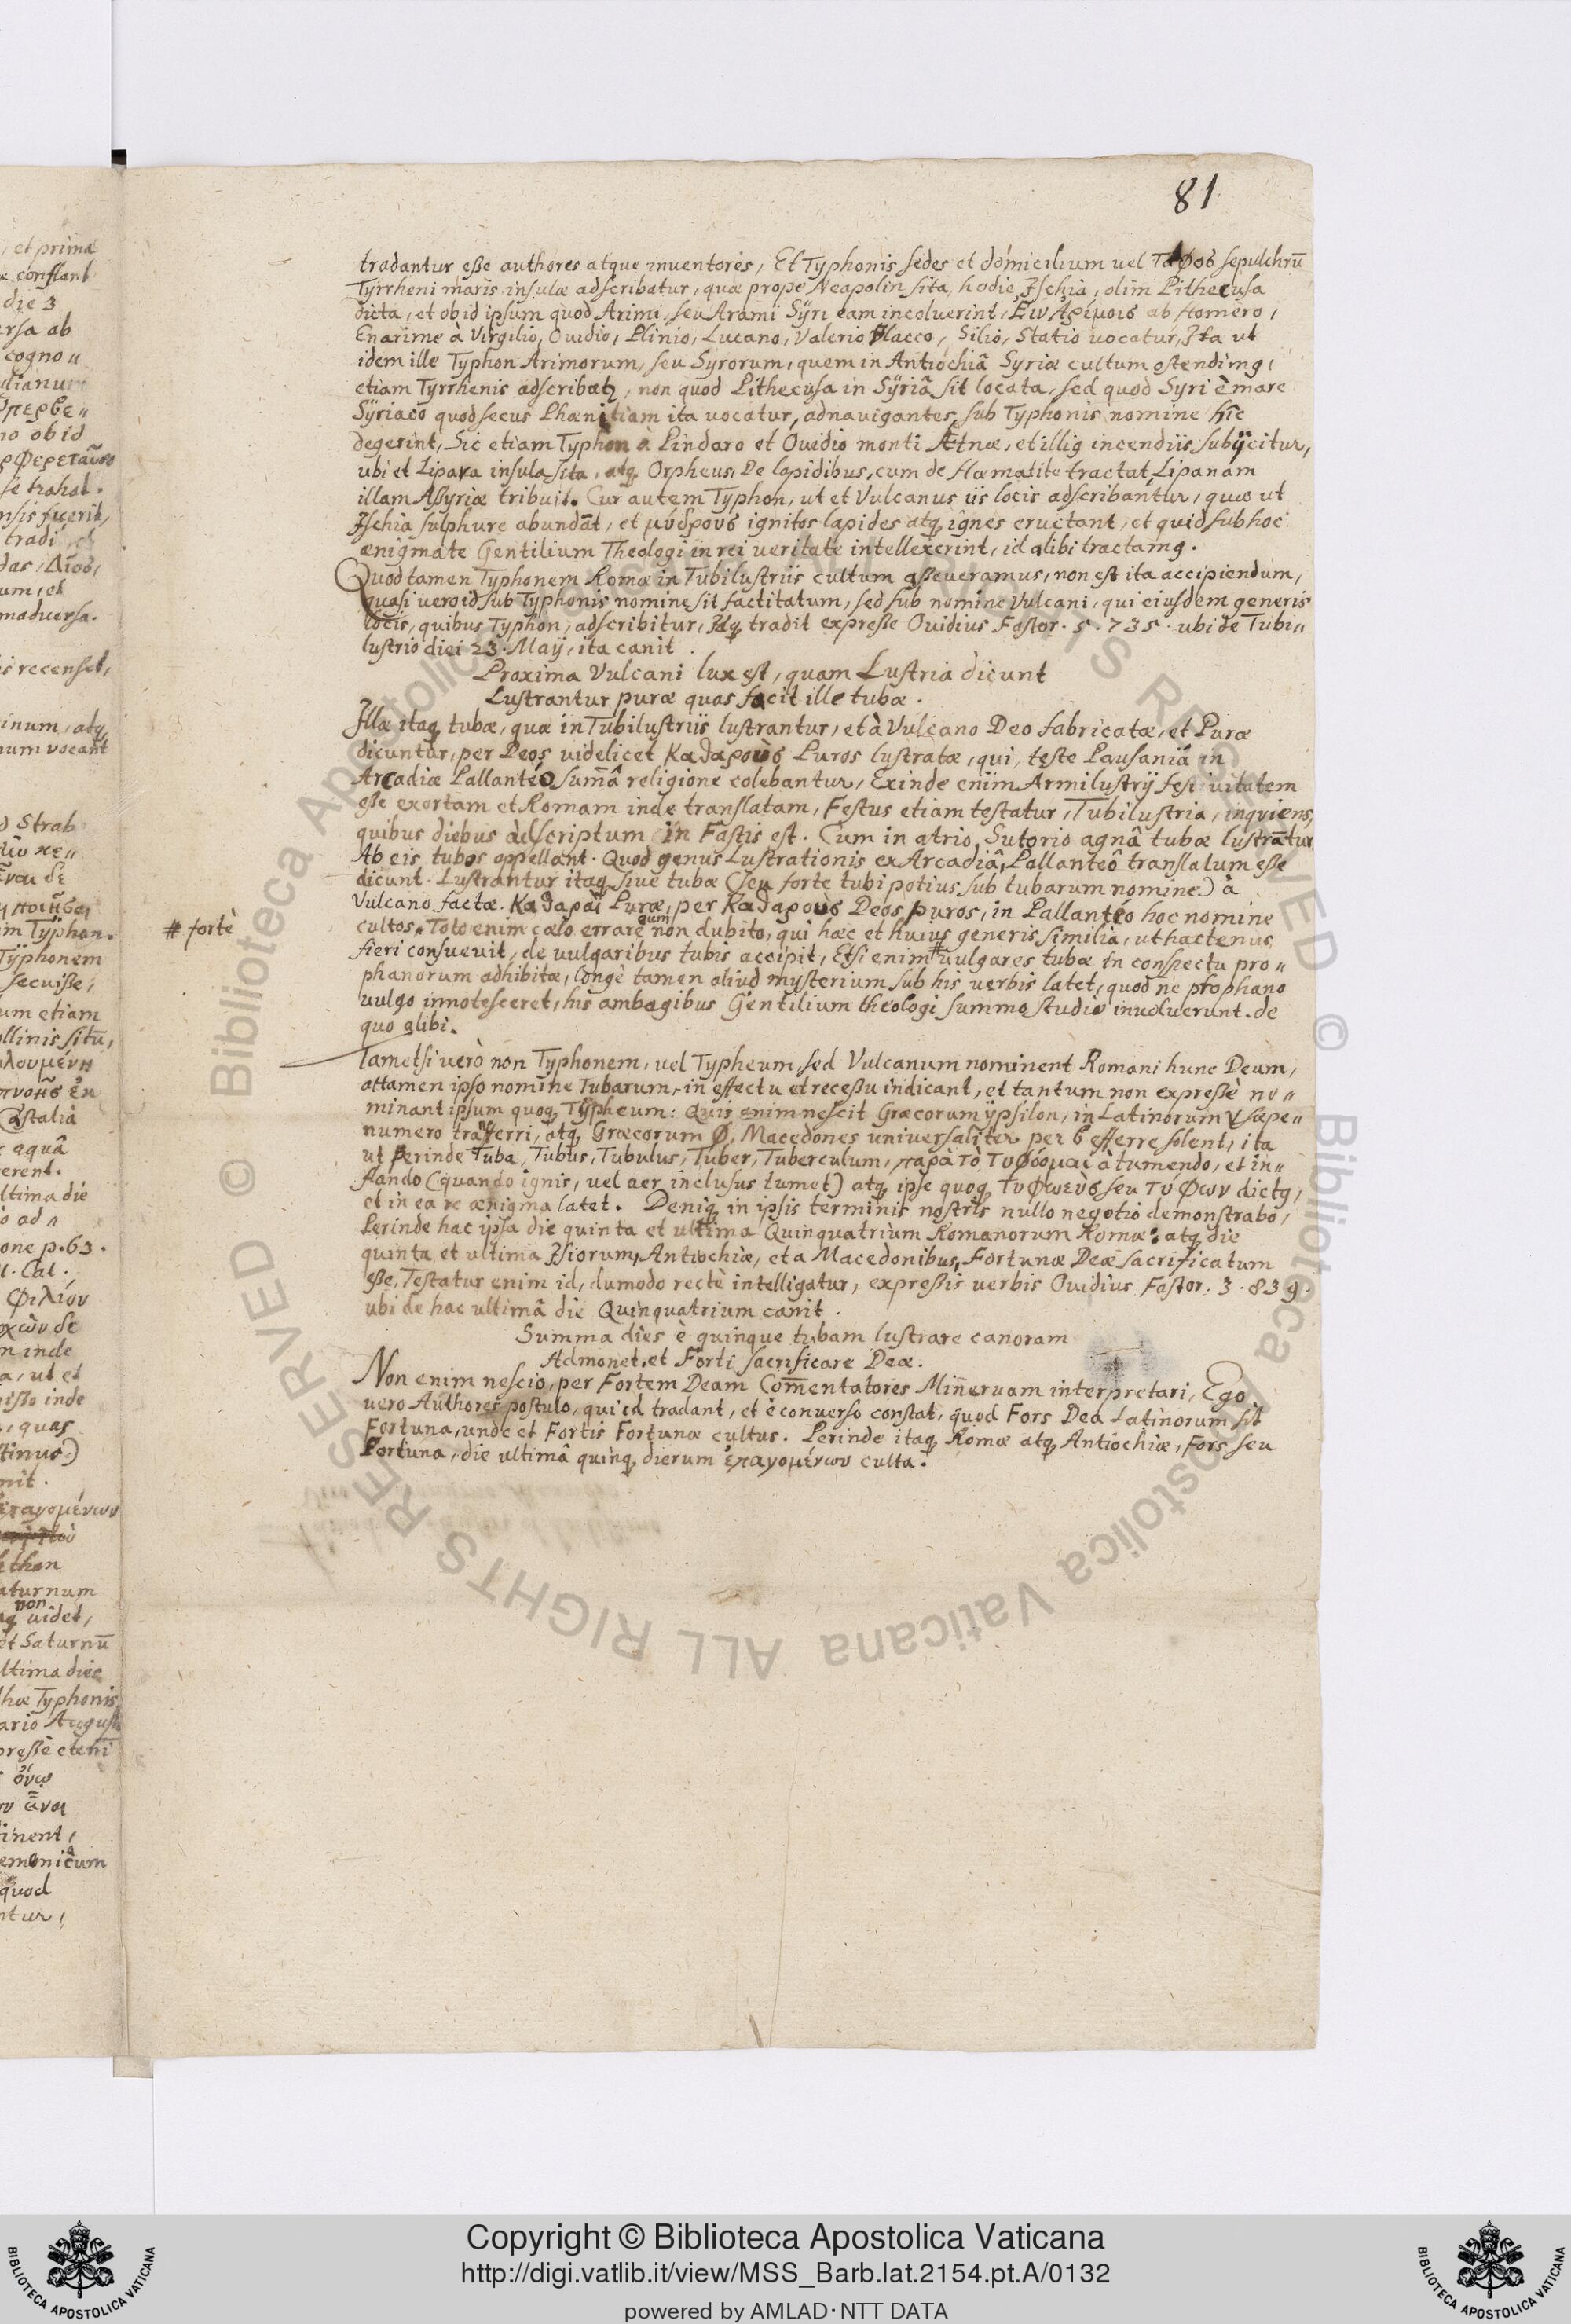 81
tradantur esse authores atque inventores, Et Typhonis sedes et domicilium uel Ταφος sepulchrū
Tyrrheni maris insulæ adscribatur, quæ prope Neapolin sita, hodie Ischia, olim Pithecusa
dicta, et ob id ipsum quod Arimi, seu Arami Sÿri eam incoluerint, Ειν Αρίμοις ab Homero,
Enarime à Virgilio, Ouidio, Plinio, Lucano, Valerio Flacco, Silio, Statio uocatur, Ita ut
idem ille Typhon Arimorum, seu Syrorum, quem in Antiochiâ Syriæ cultum ostendimꝰ,
etiam Tyrrhenis adscribatꝛ, non quod Pithecusa in Sÿriâ sit locata, sed quod Syri è mare
Sÿriaco quod secus Phœnitiam ita uocatur, adnauigantes, sub Typhonis nomine hîc
degerint, Sic etiam Typhon à Pindaro et Ouidio monti Ætnæ, et illiꝰ incendiis subÿcitur,
ubi et Lipara insula sita, atq̨ Orpheus, De lapidibus, cum de Hæmatite tractat, Lipanam
illam Aßyriæ tribuit. Cur autem Typhon, ut et Vulcanus iis locis adscribantur, quæ ut
Ischia sulphure abundāt, et μύδρους ignitos lapides atq̨ ignes eructant, et quid sub hoc
ænigmate Gentilium Theologi in rei ueritate intellexerint, id alibi tractamꝰ.
Quod tamen Typhonem Romæ in Tubilustriis cultum asseueramus, non est ita accipiendum,
quasi uero id sub Typhonis nomine sit factitatum, sed sub nomine Vulcani, qui eiusdem generis
locis, quibus Typhon, adscribitur, Idq̨ tradit expresse Ouidius Fastor. 5. 735. ubi de Tubi„
lustrio diei 23. Maÿ, ita canit.
Proxima Vulcani lux est, quam Lustria dicunt
Lustrantur puræ quas facit ille tubæ.
Illæ itaq̨ tubæ, quæ in Tubilustriis lustrantur, et à Vulcano Deo fabricatæ, et Puræ
dicuntur, per Deos uidelicet Καθαρους Puros lustratæ, qui, teste Pausaniâ in
Arcadiæ Pallanteo sum̄â religione colebantur, Exinde enim Armilustrÿ festiuitatem
esse exortam et Romam inde translatam, Festus etiam testatur, Tubilustria, inquiens,
quibus diebus adscriptum in Fastis est. Cum in atrio Sutorio agnâ tubæ lustrātur,
Ab eis tubos appellant. Quod genus Lustrationis ex Arcadiâ, Pallanteô translatum esse
dicunt. Lustrantur itaq̨ siue tubæ (seu forte tubi potius sub tubarum nomine) à
Vulcano factæ. Καθαραὶ Puræ, per Καθαροὺς Deos puros, in Pallantéo hoc nomine
cultos. Toto enim cælo errare eum non dubito, qui hæc et huius generis similia, ut hactenus
# fortè
fieri consueuit, de uulgaribus tubis accipit, Etsi enim # uulgares tubæ in conspectu pro„
phanorum adhibitæ, longè tamen aliud mysterium sub his uerbis latet, quod ne prophano
uulgo innotesceret, his ambagibus Gentilium theologi summo studio inuoluerunt. de
quo alibi.
Tametsi uerò non Typhonem, uel Typheum, sed Vulcanum nominent Romani hunc Deum,
attamen ipso nomine Tubarum, in effectu et recessu indicant, et tantum non expreßè no„
minant ipsum quoq̨ Typheum: Quis enim nescit Græcorum ÿpsilon, in Latinorum V sæpe„
numero transferri, atq̨ Græcorum Φ, Macedones universaliter per b efferre solent, ita
ut perinde Tuba, Tubus, Tubulus, Tuber, Tuberculum, παρὰ τὸ τυφόομαι à tumendo, et in„
flando (quando ignis, uel aer inclusus tumet) atq̨ ipse quoq̨ Τυφωεὺς seu Τύφων dictꝰ,
et in ea re ænigma latet. Deniq̨ in ipsis terminis nostris nullo negotio demonstrabo,
Perinde hac ipsa die quinta et ultima Quinquatrium Romanorum Romæ: atq̨ die
quinta et ultima Isiorum, Antiochiæ, et a Macedonibus, Fortunæ Deæ sacrificatum
esse, Testatur enim id, dumodo rectè intelligatur, expreßis uerbis Ouidius Fastor. 3. 839.
ubi de hac ultimâ die Quinquatrium canit.
Summa dies è quinque tubam lustrare canoram
Admonet, et Forti sacrificare Deæ.
Non enim nescio, per Fortem Deam Com̄entatores Mineruam interpretari, Ego
uero Authores postulo, qui id tradant, et è conuerso constat, quod Fors Dea Latinorum sit
Fortuna, unde et Fortis Fortunæ cultus. Perinde itaq̨ Romæ atq̨ Antiochiæ, Fors seu
Fortuna, die ultimâ quinq̨ dierum ἐπαγομένων culta.
Copyright © Biblioteca Apostolica Vaticana
http://digi.vatlib.it/view/MSS_Barb.lat.2154.pt.A/0132
powered by AMLAD·NTT DATA